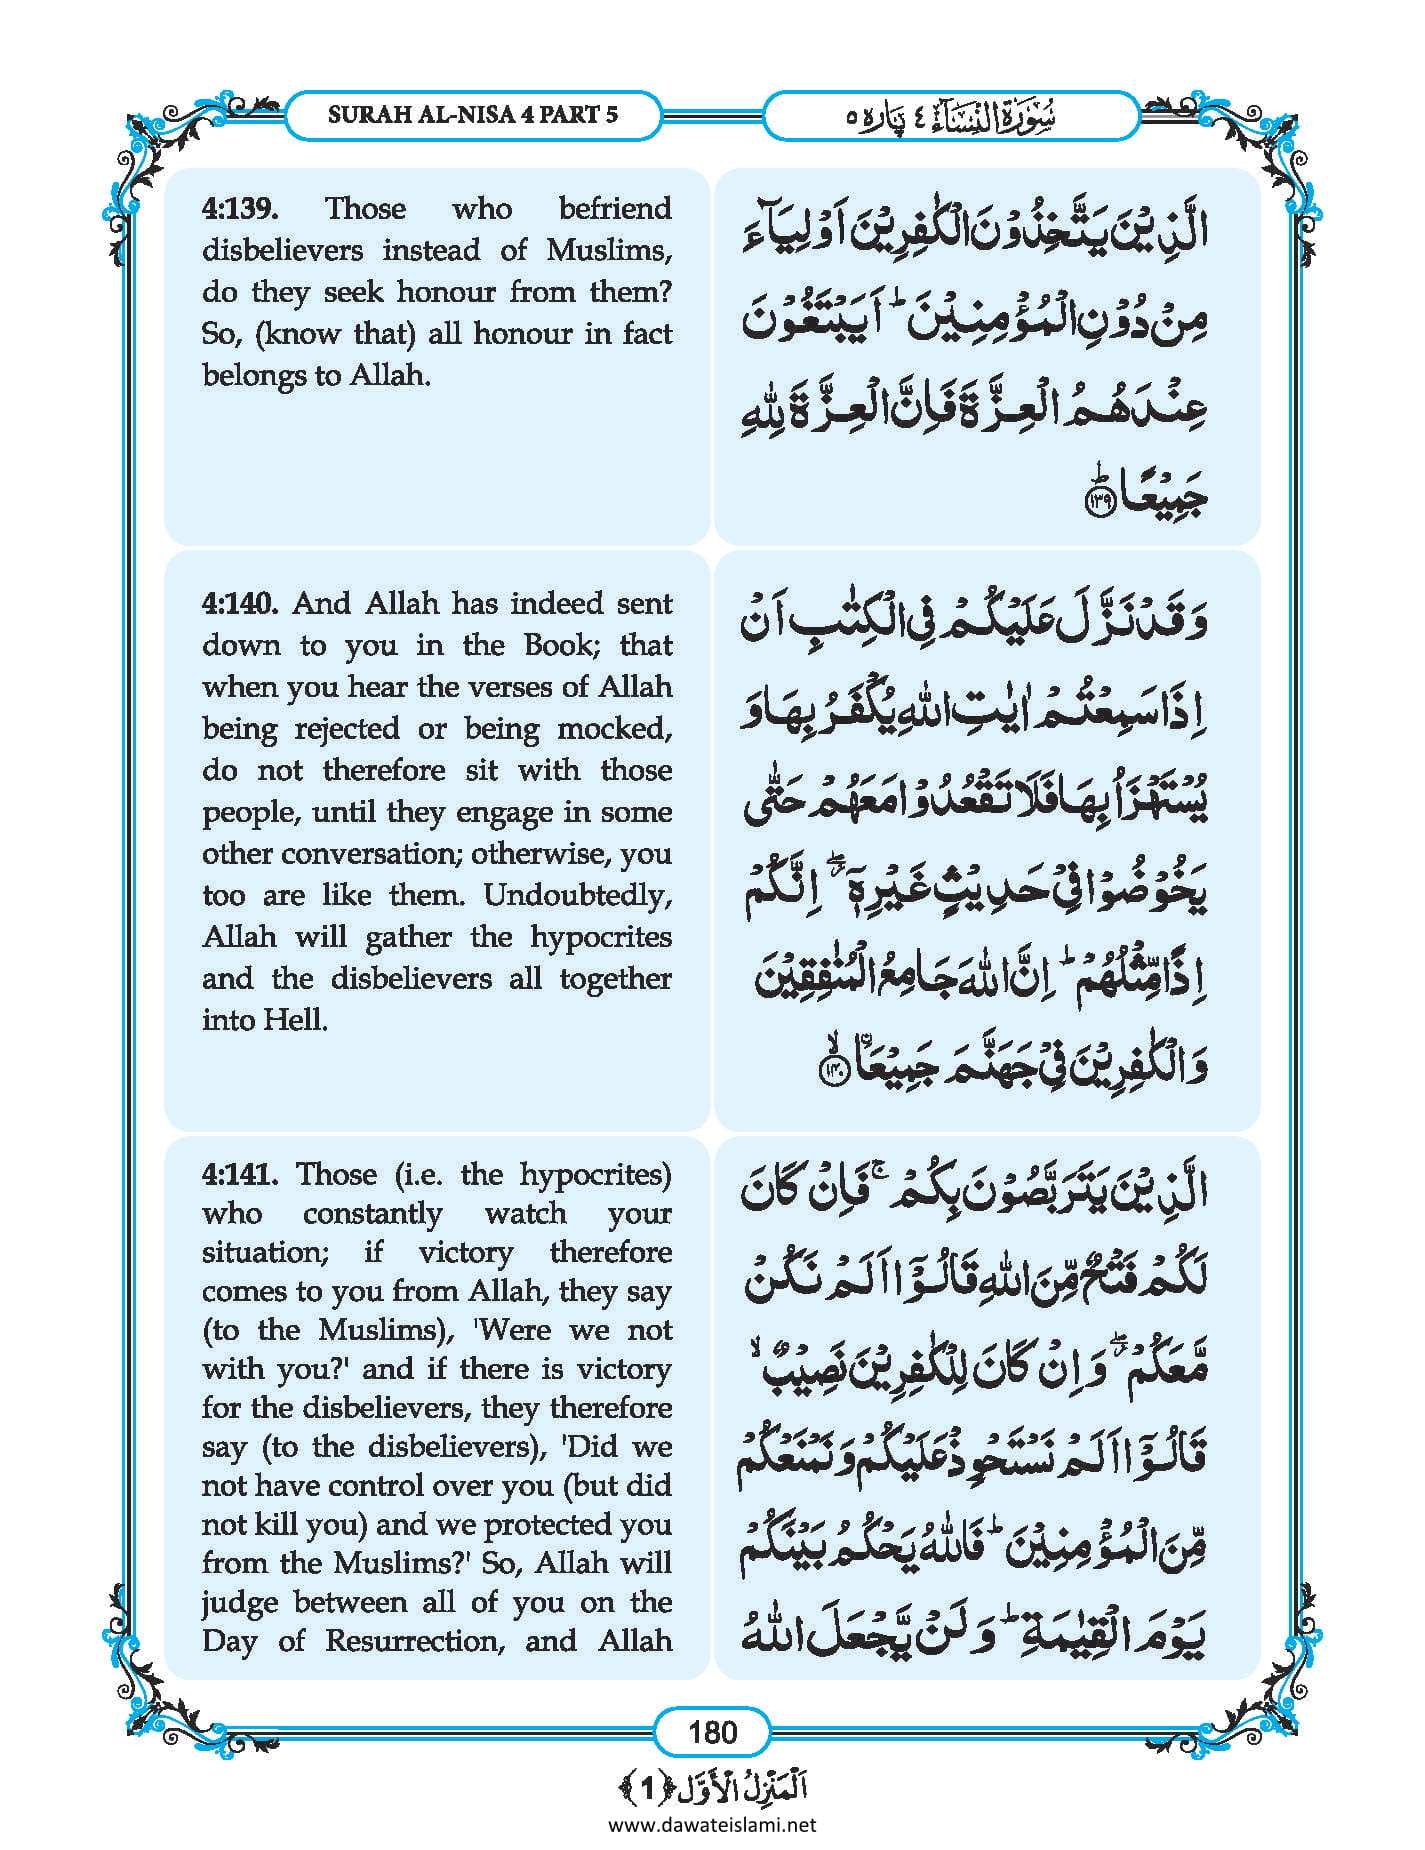 SURAH AL-NISA 4 PART 5
سُوْرَةُ النِّسَآءِ ٤ پَاره ٥
4:139. Those who befriend
disbelievers instead of Muslims,
do they seek honour from them?
So, (know that) all honour in fact
belongs to Allah.
الَّذِیْنَ یَتَّخِذُوْنَ الْكٰفِرِیْنَ اَوْلِیَآءَ
مِنْ دُوْنِ الْمُؤْمِنِیْنَ ؕ اَیَبْتَغُوْنَ
عِنْدَهُمُ الْعِزَّةَ فَاِنَّ الْعِزَّةَ لِلّٰهِ
جَمِیْعًا ؕ ﴿۱۳۹﴾
4:140. And Allah has indeed sent
down to you in the Book; that
when you hear the verses of Allah
being rejected or being mocked,
do not therefore sit with those
people, until they engage in some
other conversation; otherwise, you
too are like them. Undoubtedly,
Allah will gather the hypocrites
and the disbelievers all together
into Hell.
وَ قَدْ نَزَّلَ عَلَیْكُمْ فِی الْكِتٰبِ اَنْ
اِذَا سَمِعْتُمْ اٰیٰتِ اللّٰهِ یُكْفَرُ بِهَا وَ
یُسْتَهْزَاُ بِهَا فَلَا تَقْعُدُوْا مَعَهُمْ حَتّٰی
یَخُوْضُوْا فِیْ حَدِیْثٍ غَیْرِهٖۤ ۖ٘ اِنَّكُمْ
اِذًا مِّثْلُهُمْ ؕ اِنَّ اللّٰهَ جَامِعُ الْمُنٰفِقِیْنَ
وَ الْكٰفِرِیْنَ فِیْ جَهَنَّمَ جَمِیْعَاۨ ۙ ﴿۱۴۰﴾
4:141. Those (i.e. the hypocrites)
who constantly watch your
situation; if victory therefore
comes to you from Allah, they say
(to the Muslims), 'Were we not
with you?' and if there is victory
for the disbelievers, they therefore
say (to the disbelievers), 'Did we
not have control over you (but did
not kill you) and we protected you
from the Muslims?' So, Allah will
judge between all of you on the
Day of Resurrection, and Allah
الَّذِیْنَ یَتَرَبَّصُوْنَ بِكُمْ ۚ فَاِنْ كَانَ
لَكُمْ فَتْحٌ مِّنَ اللّٰهِ قَالُوْۤا اَلَمْ نَكُنْ
مَّعَكُمْ ۖ٘ وَ اِنْ كَانَ لِلْكٰفِرِیْنَ نَصِیْبٌ ۙ
قَالُوْۤا اَلَمْ نَسْتَحْوِذْ عَلَیْكُمْ وَ نَمْنَعْكُمْ
مِّنَ الْمُؤْمِنِیْنَ ؕ فَاللّٰهُ یَحْكُمُ بَیْنَكُمْ
یَوْمَ الْقِیٰمَةِ ؕ وَ لَنْ یَّجْعَلَ اللّٰهُ
180
اَلْمَنْزِلُ الْاَوَّل ﴿1﴾
www.dawateislami.net